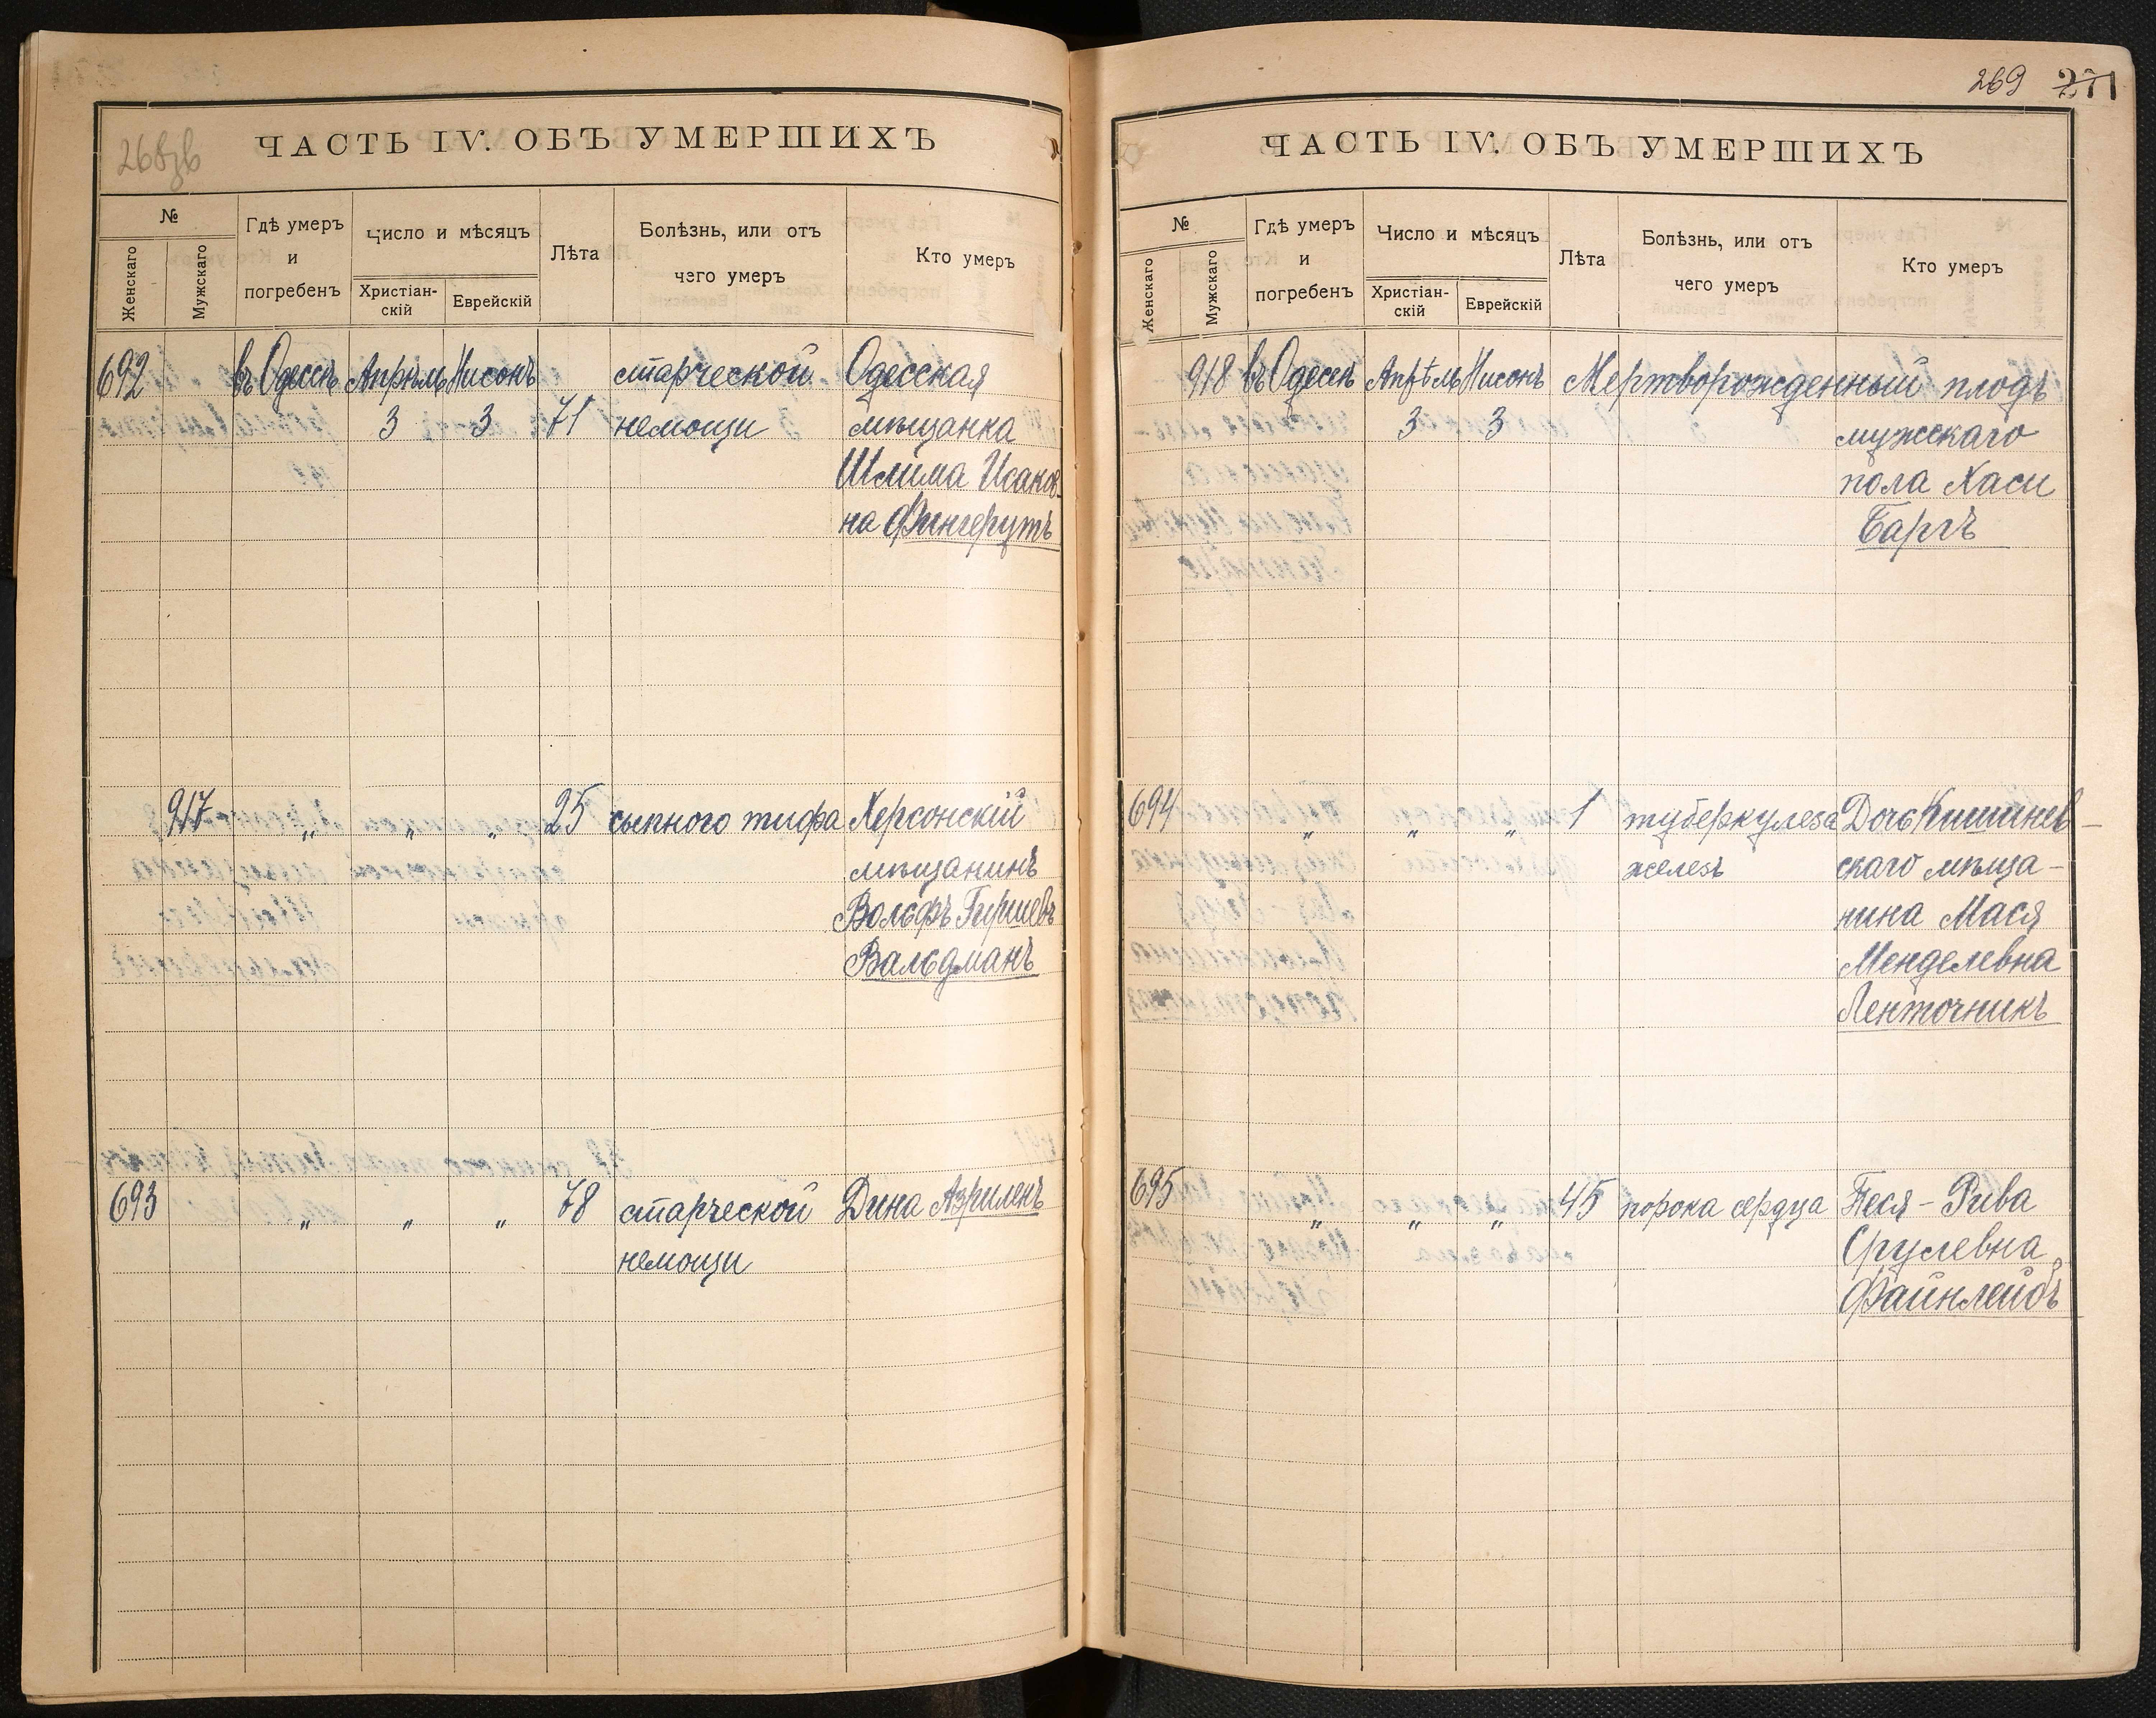 268зв
ЧАСТЬ IV. ОБЪ УМЕРШИХЪ
№
Женскаго
Мужскаго
Гдѣ умеръ
и
погребенъ
Число и мѣсяцъ
Христіан-
скій
Еврейскій
Лѣта
Болѣзнь, или отъ
чего умеръ
Кто умеръ
692 въ Одессѣ Апрѣль Нисонъ старческой Одесская
3 3 71 немощи мѣщанка
Шлима Исаков-
на Фингерутъ
917 " " " 25 сыпного тифа Херсонскій
мѣщанинъ
Вольфъ Гиршевъ
Вальдманъ
693 " " " 78 старческой Дина Азриленъ
немощи
269 271
ЧАСТЬ IV. ОБЪ УМЕРШИХЪ
№
Женскаго
Мужскаго
Гдѣ умеръ
и
погребенъ
Число и мѣсяцъ
Христіан-
скій
Еврейскій
Лѣта
Болѣзнь, или отъ
чего умеръ
Кто умеръ
918 въ Одессѣ Апрѣль Нисонъ Мертворожденный плодъ
3 3 мужскаго
пола Хаси
Баргъ
694 " " " 1 туберкулеза Дочь Кишинев-
железъ скаго мѣща-
нина Мася
Менделевна
Ленточникъ
695 " " " 45 порока сердца Песя-Рива
Срулевна
Файнлейбъ